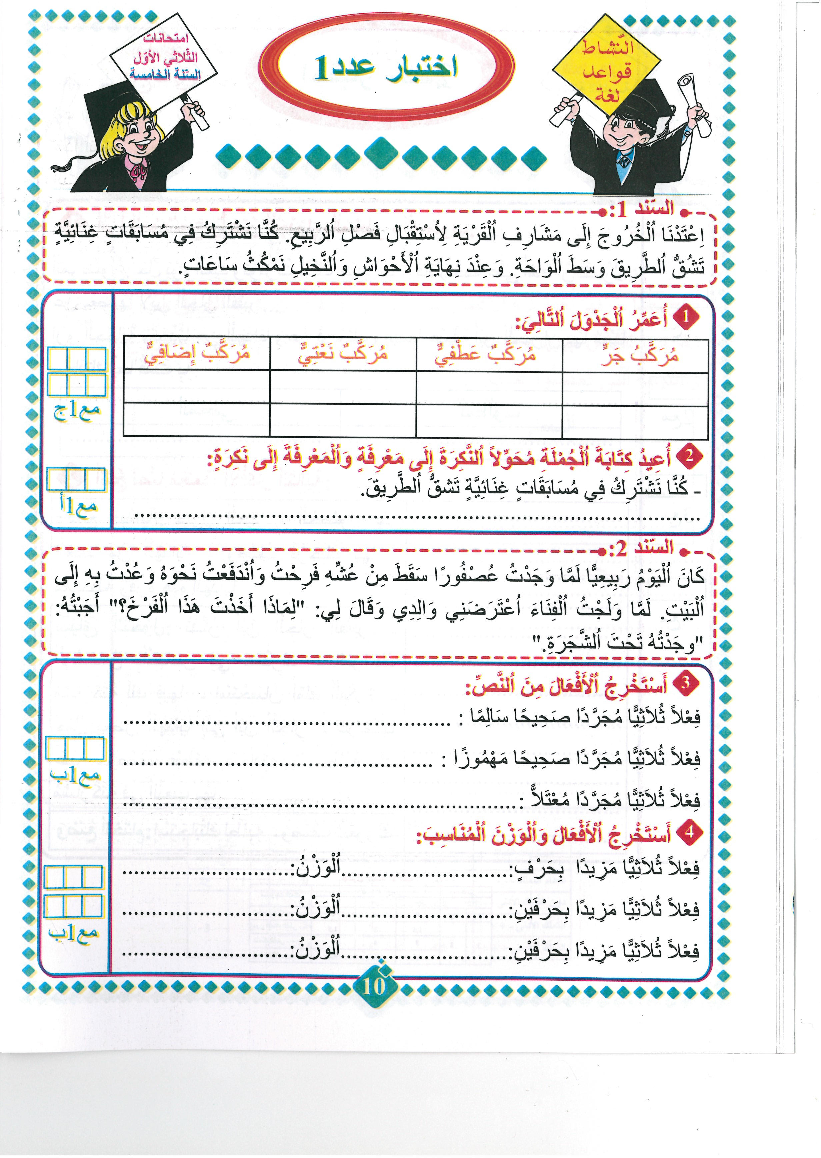 امتحانات
الثّلاثي الأوّل
السنة الخامسة
اختبار عدد1
النّشاط
قواعد
لغة
السّند 1:
اِعْتَدْنَا اُلْخُرُوجَ إِلَى مَشَارِفِ اُلْقَرْيَةِ لِاُسْتِقْبَالِ فَصْلِ اُلرَّبِيعِ. كُنَّا نَشْتَرِكُ فِي مُسَابَقَاتٍ غِنَائِيَّةٍ
تَشُقُّ اُلطَّرِيقَ وَسَطَ اُلْوَاحَةِ. وَعِنْدَ نِهَايَةِ اُلْأَحْوَاشِ وَاُلنَّخِيلِ نَمْكُثُ سَاعَاتٍ.
1 أُعَمِّرُ اُلْجَدْوَلَ اُلتَّالِيَ:
مُرَكَّبُ جَرٍّ مُرَكَّبٌ عَطْفِيٌّ مُرَكَّبٌ نَعْتِيٌّ مُرَكَّبٌ إِضَافِيٌّ
مع1ج
2 أُعِيدُ كِتَابَةَ اُلْجُمْلَةِ مُحَوِّلاً اُلنَّكِرَةَ إِلَى مَعْرِفَةٍ وَاُلْمَعْرِفَةَ إِلَى نَكِرَةٍ:
- كُنَّا نَشْتَرِكُ فِي مُسَابَقَاتٍ غِنَائِيَّةٍ تَشُقُّ اُلطَّرِيقَ.
مع1أ
السّند 2:
كَانَ اُلْيَوْمُ رَبِيعِيًّا لَمَّا وَجَدْتُ عُصْفُورًا سَقَطَ مِنْ عُشِّهِ فَرِحْتُ وَاُنْدَفَعْتُ نَحْوَهُ وَعُدْتُ بِهِ إِلَى
اُلْبَيْتِ. لَمَّا وَلَجْتُ اُلْفِنَاءَ اُعْتَرَضَنِي وَالِدِي وَقَالَ لِي: "لِمَاذَا أَخَذْتَ هَذَا اُلْفَرْخَ؟" أَجَبْتُهُ:
"وجَدْتُهُ تَحْتَ اُلشَّجَرَةِ."
3 أَسْتَخْرِجُ اُلْأَفْعَالَ مِنَ اُلنَّصِّ:
فِعْلاً ثُلَاثِيًّا مُجَرَّدًا صَحِيحًا سَالِمًا : ........................................
فِعْلاً ثُلَاثِيًّا مُجَرَّدًا صَحِيحًا مَهْمُوزًا : ........................................
فِعْلاً ثُلَاثِيًّا مُجَرَّدًا مُعْتَلاًّ :........................................
مع1ب
4 أَسْتَخْرِجُ اُلْأَفْعَالَ وَاُلْوَزْنَ اُلْمُنَاسِبَ:
فِعْلاً ثُلَاثِيًّا مَزِيدًا بِحَرْفٍ:....................اُلْوَزْنُ:....................
فِعْلاً ثُلَاثِيًّا مَزِيدًا بِحَرْفَيْنِ:....................اُلْوَزْنُ:....................
فِعْلاً ثُلَاثِيًّا مَزِيدًا بِحَرْفَيْنِ:....................اُلْوَزْنُ:....................
مع1ب
10